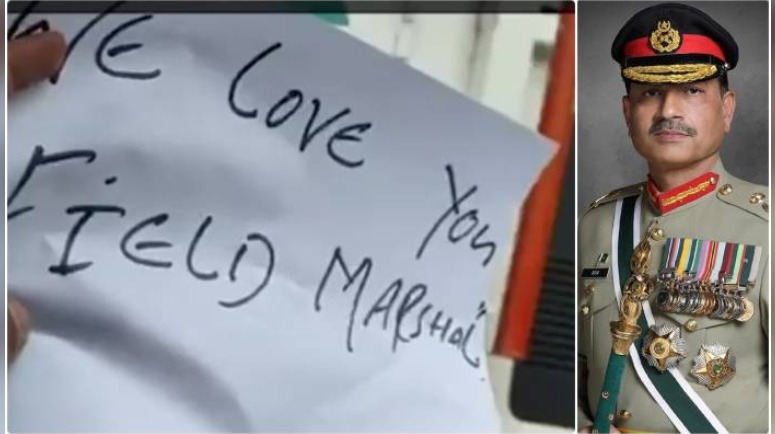 WE LOVE You
FIELD MARSHAL